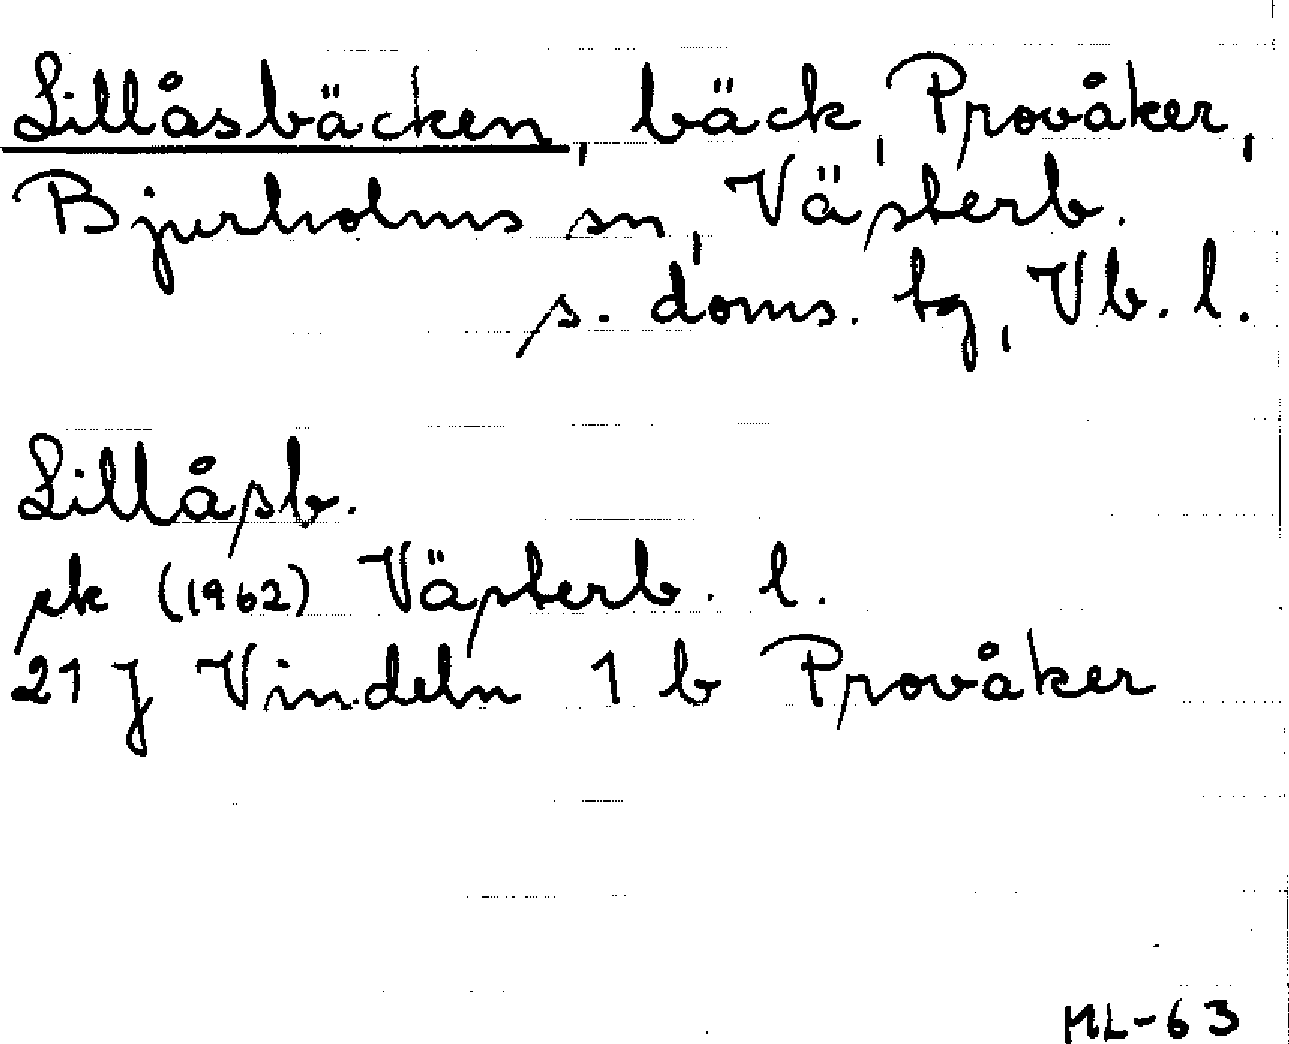 Lillåsbäcken, bäck, Provåker,
Bjurholms sn, Västerb.
s. doms. tg, Vb. l.
Lillåsb.
ek (1962) Västerb. l.
21 J Vindeln 1 b Provåker
ML-63